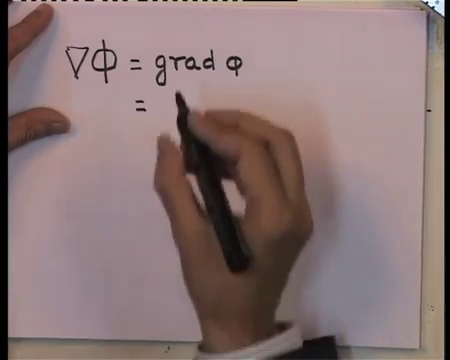 ∇Φ = grad φ
=